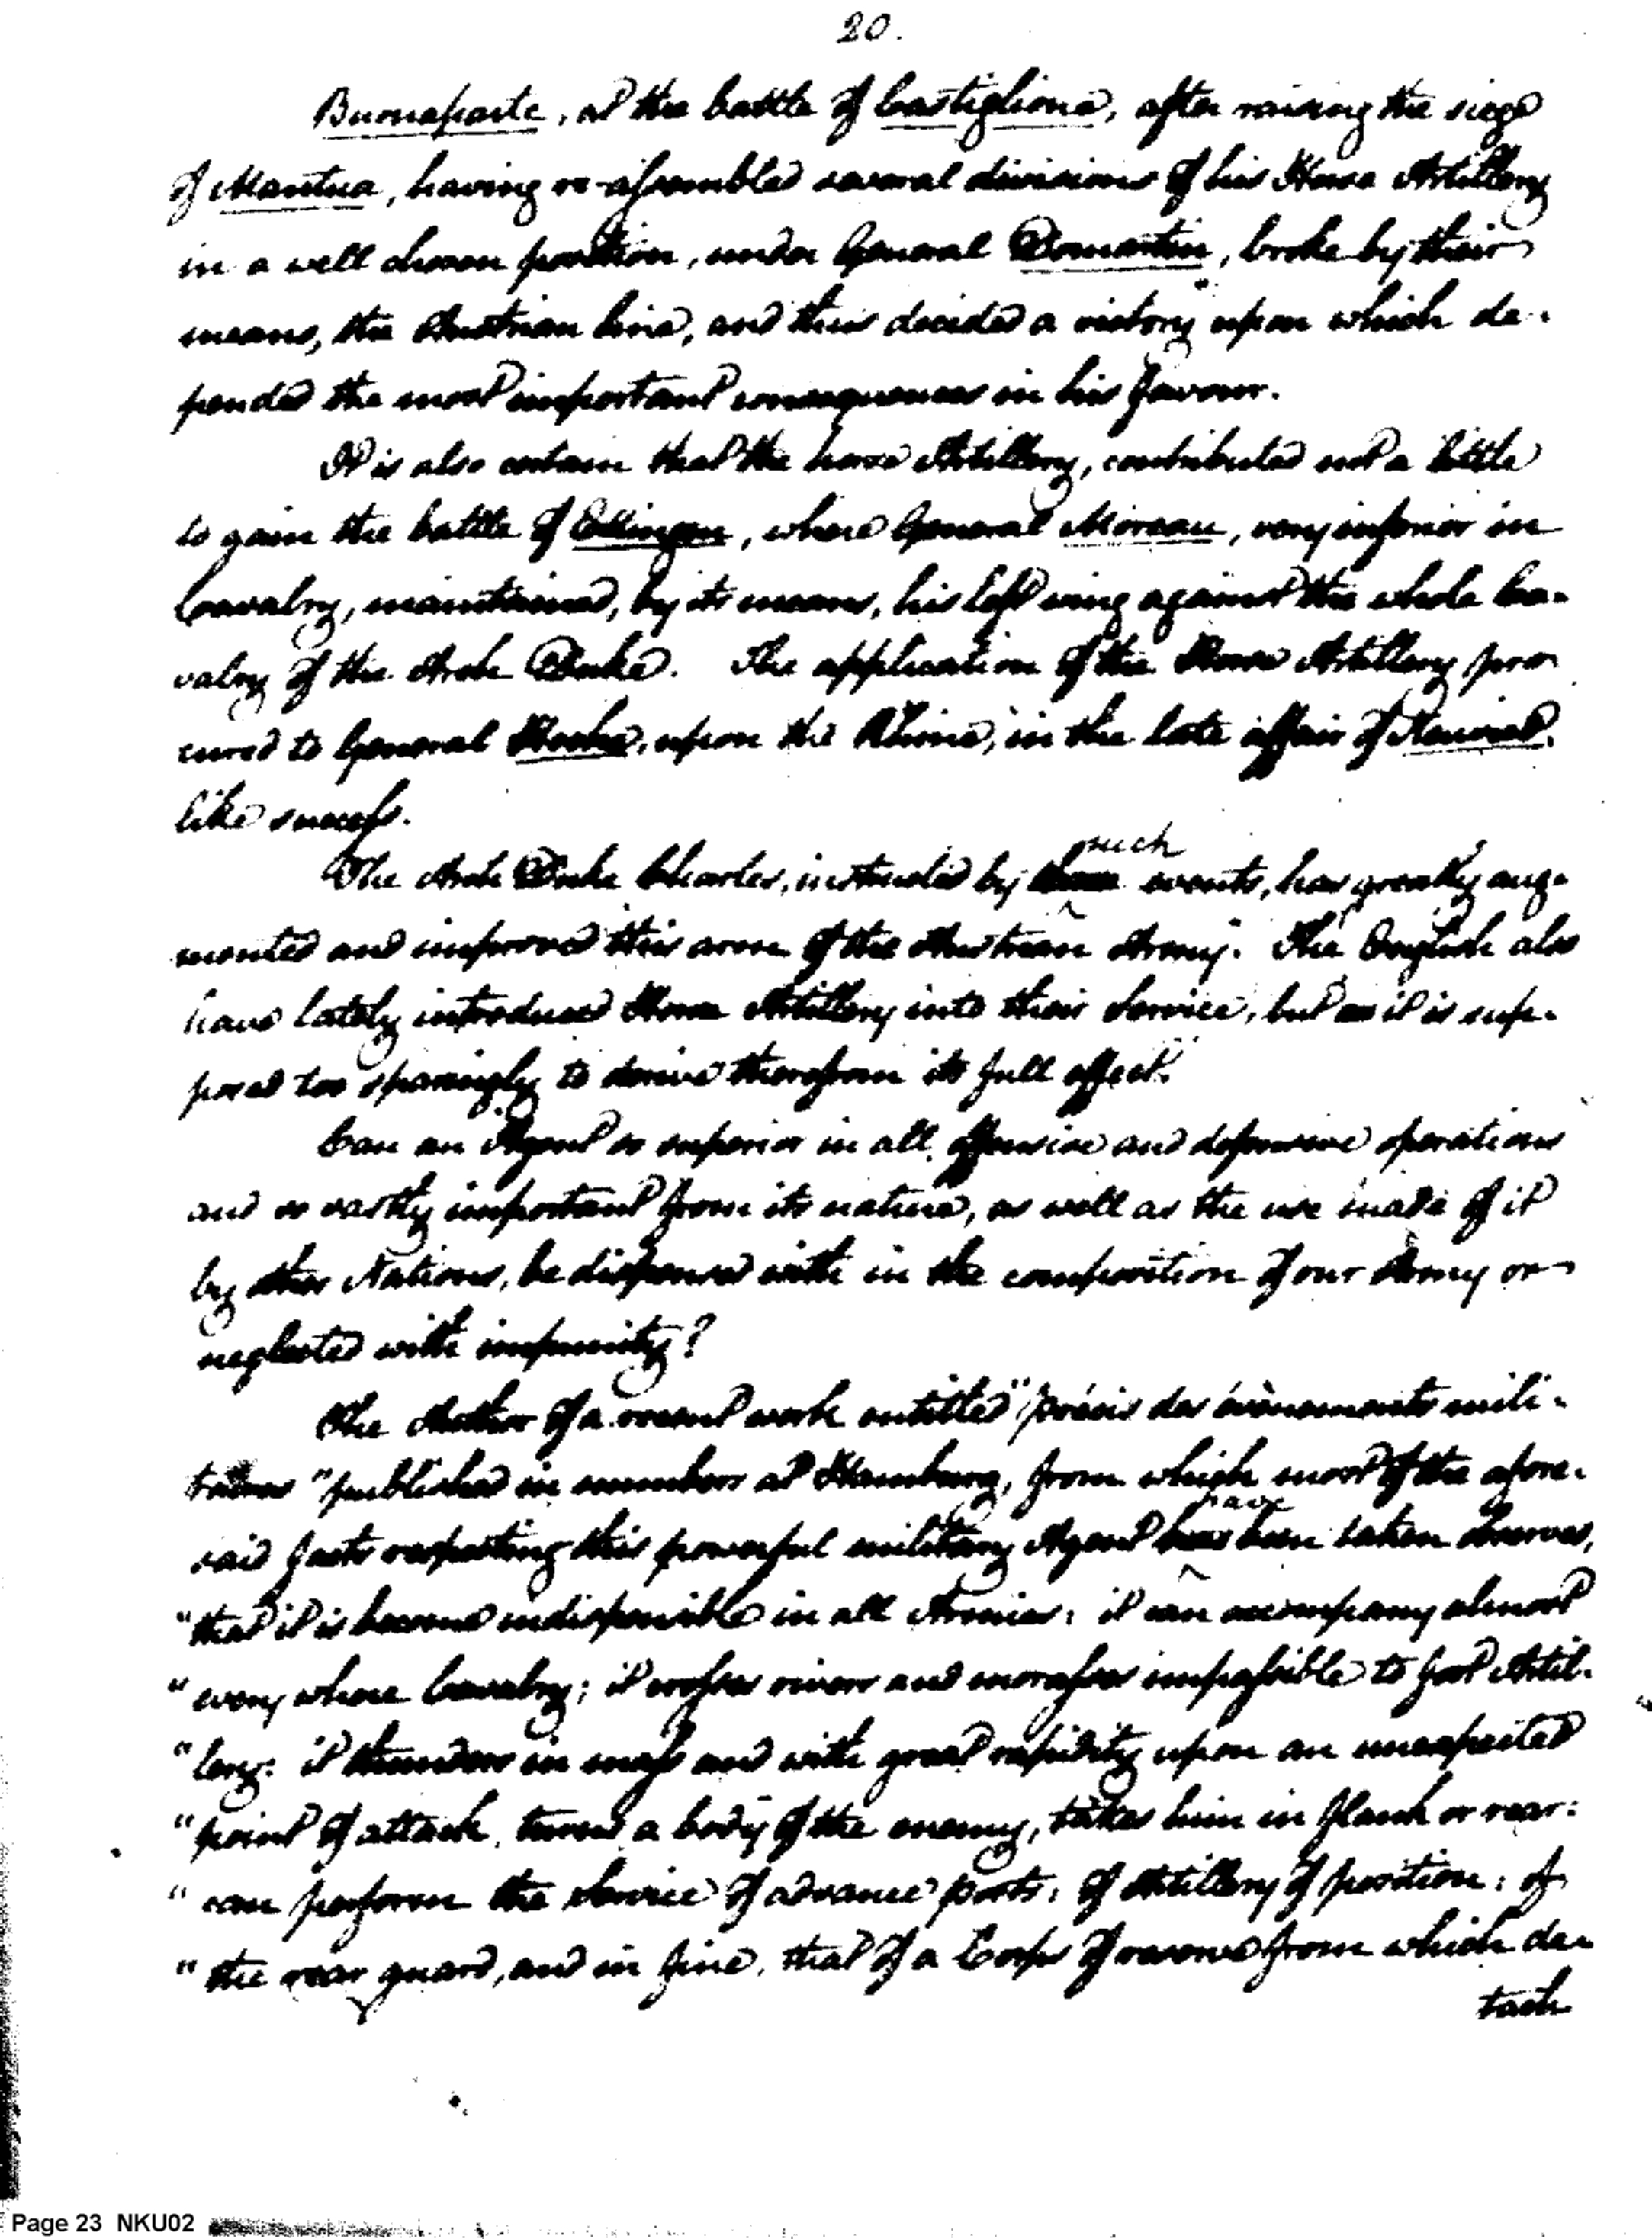 20.
Buonaparte, at the battle of Castiglione, after raising the siege
of Mantua, having re-assembled several divisions of his Horse Artillery
in a well chosen position, under General Domartin, broke by their
means, the Austrian line, and thus decided a victory upon which de-
pended the most important consequences in his favour.
It is also certain that the horse Artillery, contributed not a little
to gain the battle of Ettingen, where General Moreau, very inferior in
Cavalry, maintained, by its means, his left wing against the whole Ca-
valry of the Arch Duke. The application of the Horse Artillery pro-
cured to General Hoche, upon the Rhine, in the late affair of Neuwied.
like success.
The Arch Duke Charles, instructed by such events, has greatly aug-
mented and improved this arm of the Austrian Army. The English also
have lately introduced Horse Artillery into their Service, but as it is sup-
posed too sparingly to derive therefrom its full effect.
Can an Agent so superior in all offensive and defensive operations
and so vastly important from its nature, as well as the use made of it
by other Nations, be dispensed with in the composition of our Army or
neglected with impunity?
The Author of a recent work entitled "précis des évènements mili-
taires" published in numbers at Hamburg, from which most of the afore-
said facts respecting this powerful military Agent have been taken observes,
"that it is become indispensible in all Armies: it can accompany almost
"every where Cavalry; it crosses rivers and morasses impassible to foot Artil-
"lery: it thunders in mass and with great rapidity upon an unexpected
"point of attack, turns a body of the enemy, takes him in flank or rear:
"can perform the Service of advance posts, of Artillery of position, of
"the rear guard, and in fine, that of a Corps of reserve from which de-
tach
Page 23 NKU02